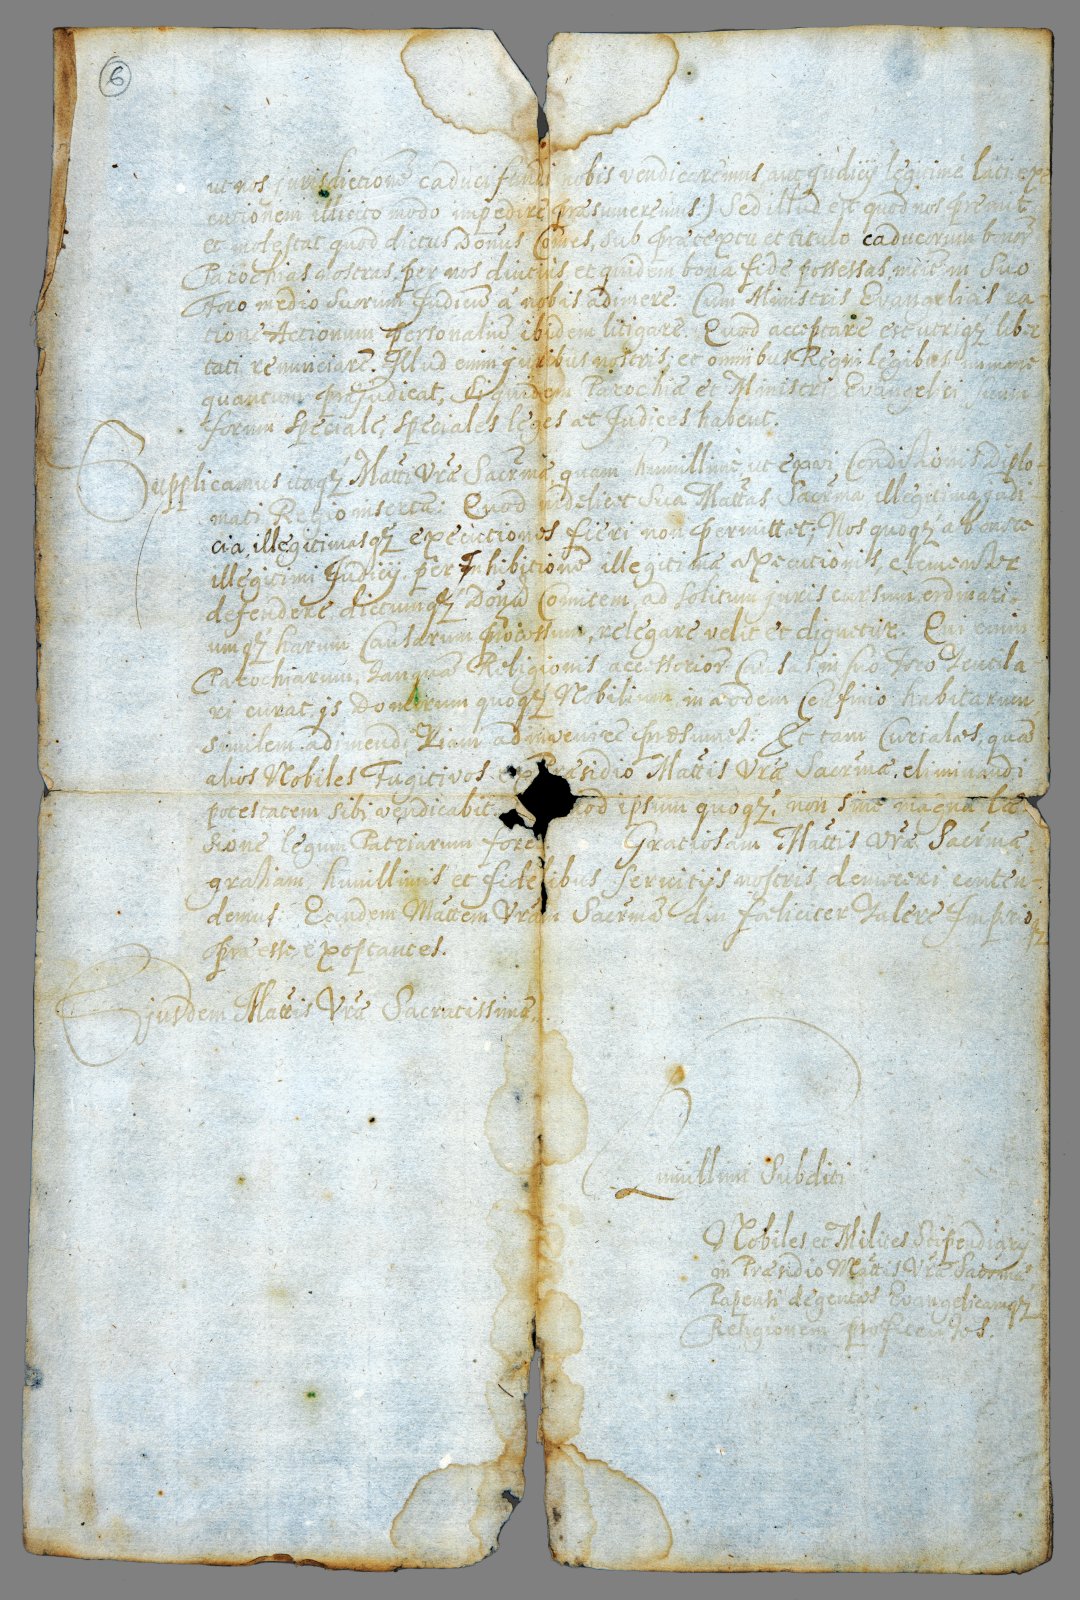 6
ut nos jurisdictionē caduci fundi nobis vendicaremus aut judicÿ legitimè lati exe
cutionem illicito modo impedire præsumeremus.) Sed illud est quod nos premit
et molestat quod dictus Donus Comes, sub præceptu et titulo caducorum bonor̄
Parochias nostras, per nos diutius, et quidem bona fide possessas, nitit̄ in Suo
foro medio Suorum Judicū à nobis adimere: Cum Ministris Evangelicis ra-
tione Actionum personaliū ibidem litigare. Quod acceptare est utriqȝ liber
tati renunciare. Illud enim juribus nostris, et omnibus Regni legibus
quantum præjudicat, Siquidem Parochiæ et Ministri Evangelici suum
forum Speciale, speciales leges ac Judices habent.
Supplicamus itaqȝ Matti Vrae Sacrmae quam humillimè, ut ex vi Conditionis diplo-
mati Regio insertæ: Quod videlicet Sua Mattas Sacrma illegitima judi
cia, illegitimasqȝ executiones fieri non permittet; Nos quoqȝ ab
illegitimi Judicÿ per Inhibitionē illegitimæ executionis, clementer
defendere dictumqȝ Donū Comitem, ad solitum juris cursum ordinari-
umqȝ harum Causarum processum, relegare velit et dignetur. Qui enim
Parochiarum, tanquā Religionis accessoriorū Ca s s in suo foro ventila
ri curat, is Domorum quoqȝ Nobilium in eodem Confinio habitarum
similem adimendi Viam advenire præsumet: Et tam Curiales, quā
alios Nobiles Fugitivos, ex Præsidio Mattis Vrae Sacrmae, eliminandi
potestatem sibi vendicabit. Quod ipsum quoqȝ, non sine magna læ
sione legum Patriarum foret. Gratiosam Mattis Vrae Sacrmae
gratiam humillimis et fidelibus servitÿs nostris, demereri conten-
demus: Eandem Mattem Vram Sacrmā diu fæliciter Valere Imperioqȝ
præesse, exoptantes.
Ejusdem Mattis Vrae Sacratissimæ.
Humillimi Subditi
Nobiles et Milites Stipendiarÿ
in Præsidio Mattis Vrae Sacrmae
Papensi degentes Evangelicamqȝ
Religionem profitentes.